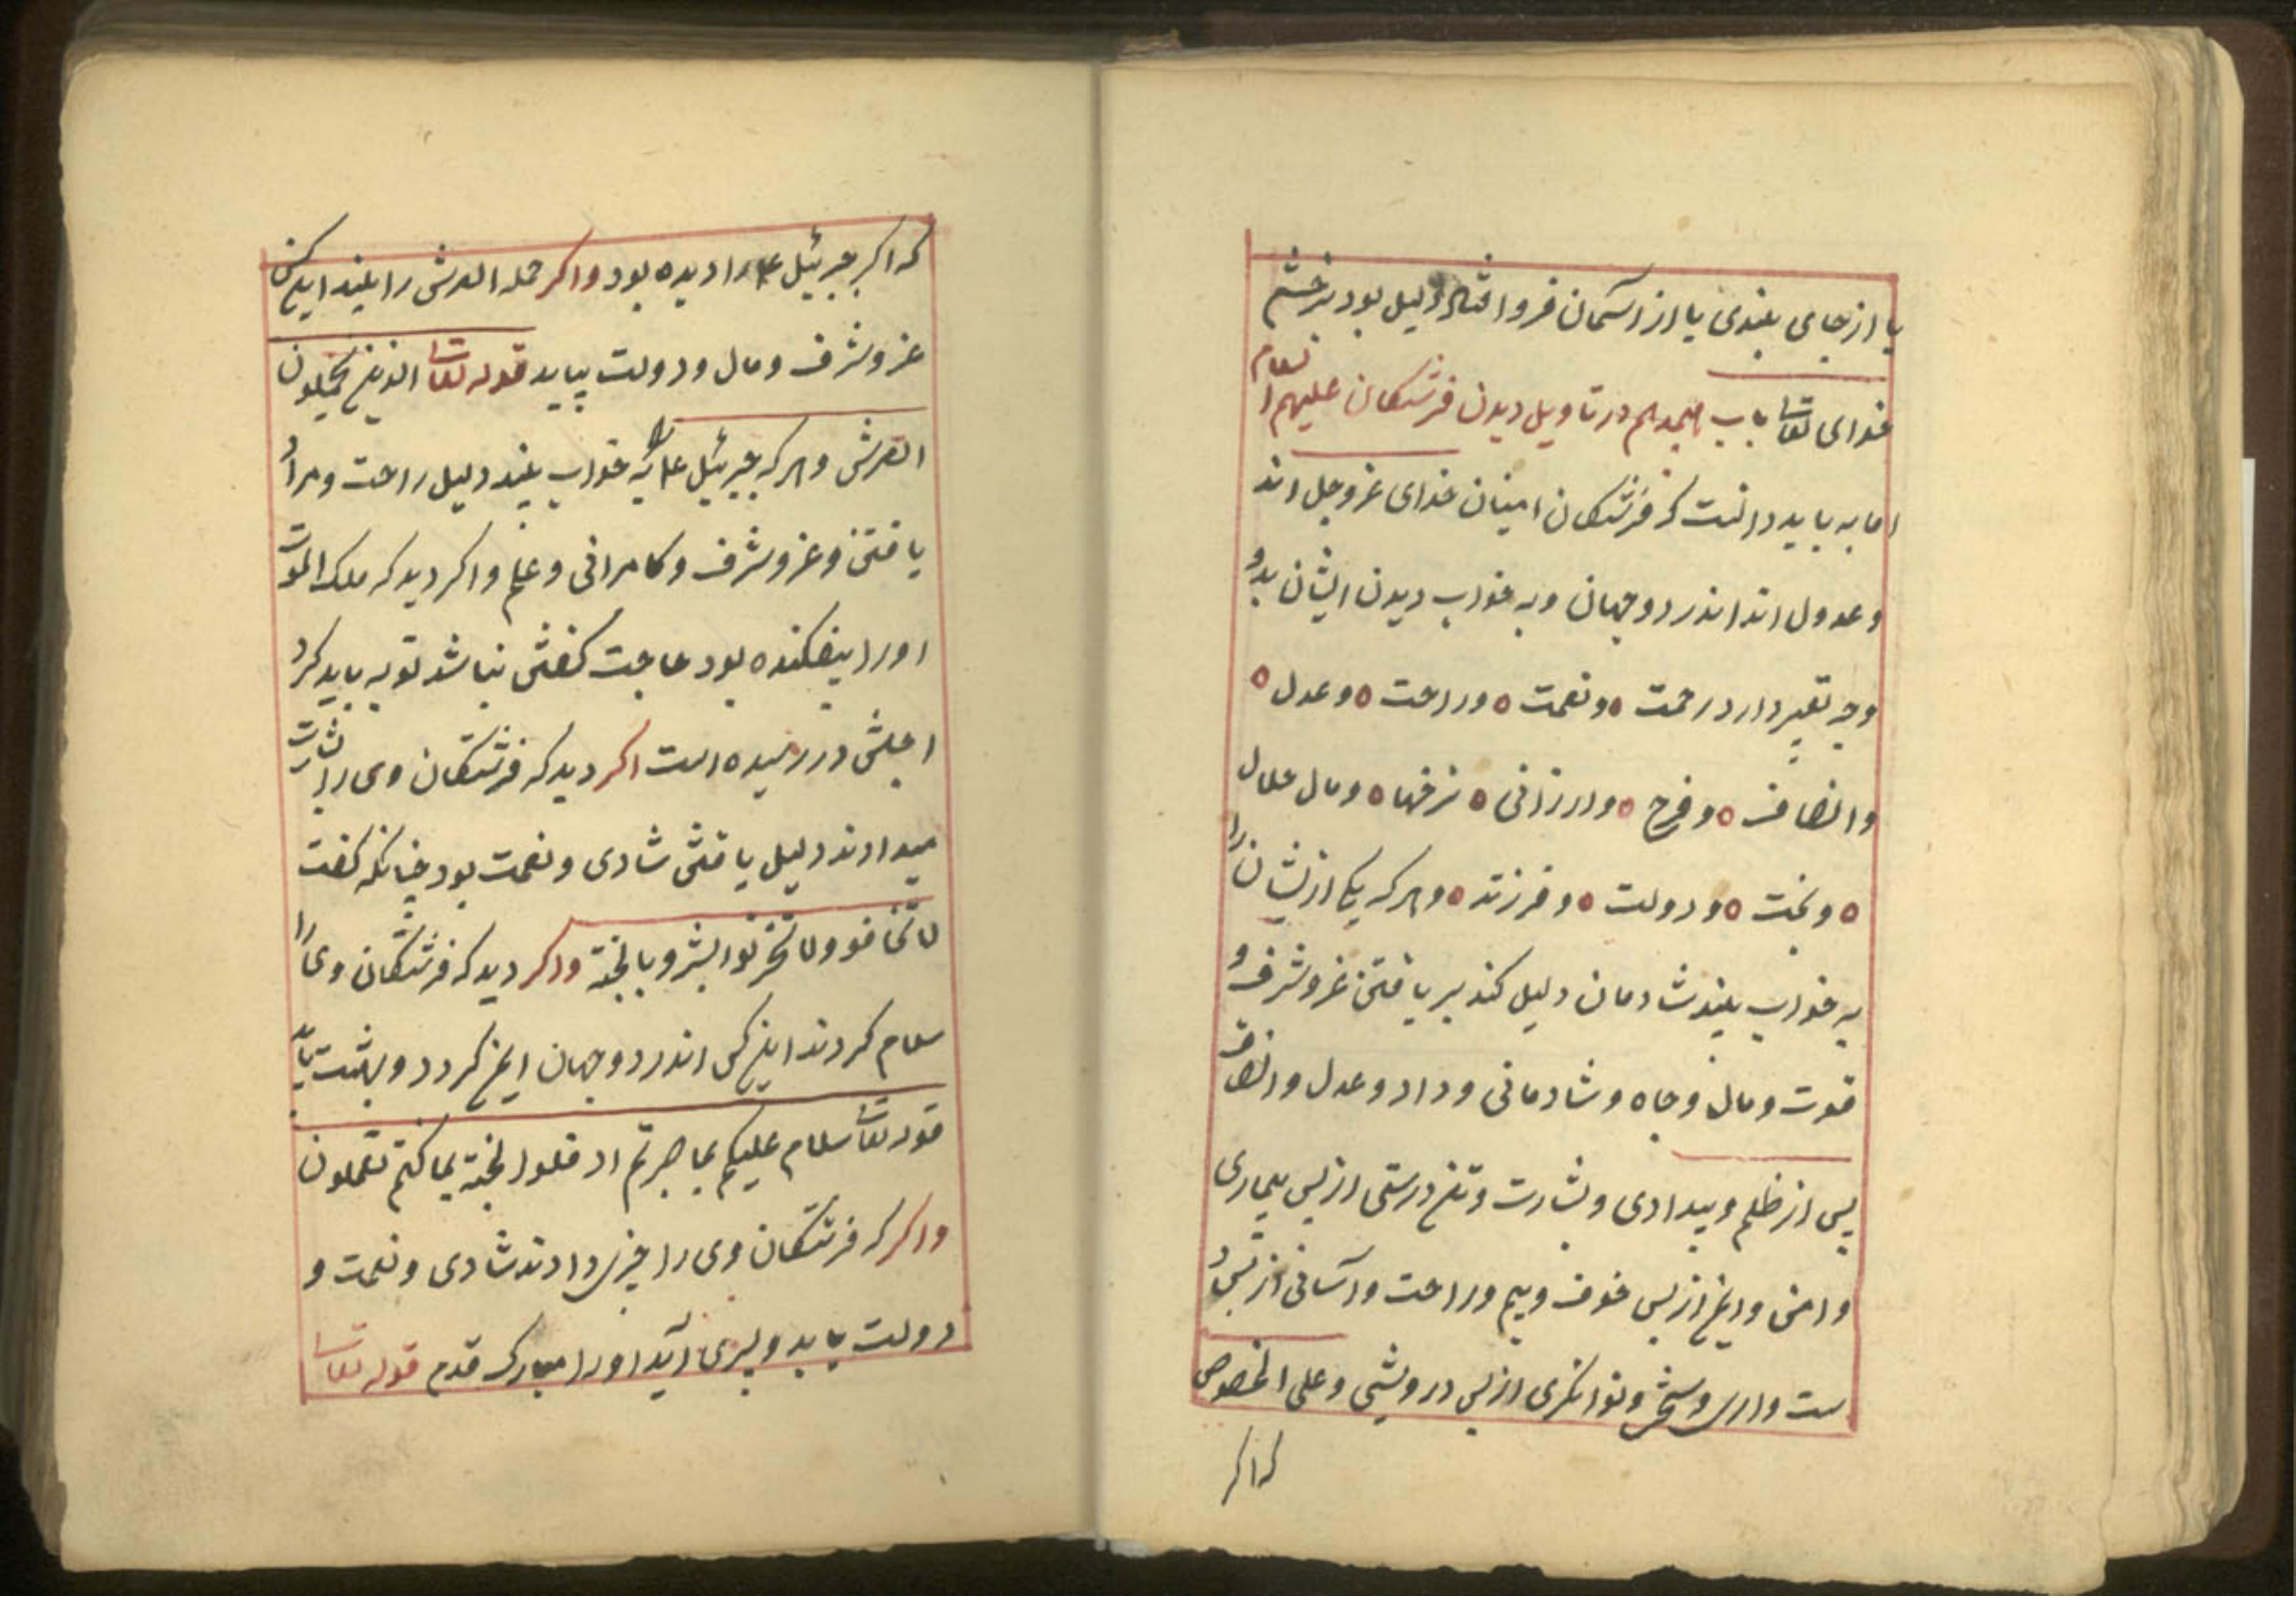 یا از جای بلندی یا از آسمان فرو افتاد دلیل بود بر خشم
خدای تعا باب هیجدهم در تاویل دیدن فرشتکان علیهم السلام
اما به باید دانست که فرشتکان امینان خدای عز و جل اند
و عدول اند اندر دو جهان و به خواب دیدن ایشان بدو
وجه تعبیر دارد رحمت ٥ و نعمت ٥ و راحت ٥ و عدل ٥
و انصاف ٥ و فرح ٥ و ارزانی ٥ نرخها ٥ و مال حلال
٥ و بخت ٥ و دولت ٥ و فرزند ٥ و هر که یکی ازیشان را
به خواب بیند شادمان دلیل کند بر یافتن عز و شرف و
قوت و مال و جاه و شادمانی و داد و عدل و انصاف
پس از ظلم و بیدادی و بشارت و تن درستی از پس بیماری
و امنی و ایمن از پس خوف و بیم و راحت و آسانی از پس
و توانکری از پس درویشی و علی الخصوص
که اکر
که اکر جبرئیل ع را دیده بود واکر حمله العرش را بیند این کس
عز و شرف و مال و دولت بیابد قوله تعا الذین یحملون
العرش و هر که جبرئیل ع را به خواب بیند دلیل راحت و مراد
یافتن و عز و شرف و کامرانی و علم واکر دید که ملک الموت
او را بیفکنده بود حاجت کفتن نباشد توبه باید کرد
اجلش در رسیده است اکر دید که فرشتکان وی را بشارت
میدادند دلیل یافتن شادی و نعمت بود چنانکه کفت
لا تخافو ولا تحزنوا ابشرو بالجنة واکر دید که فرشتکان وی را
سلام کردند این کس اندر دو جهان ایمن کردد و بهشت یابد
قوله تعا سلام علیکم بما صبرتم ادخلوا لجنة بما کنتم تعملون
واکر که فرشتکان وی را چیزی دادند شادی و نعمت و
دولت یابد و پسری آید او را مبارک قدم قوله تعا